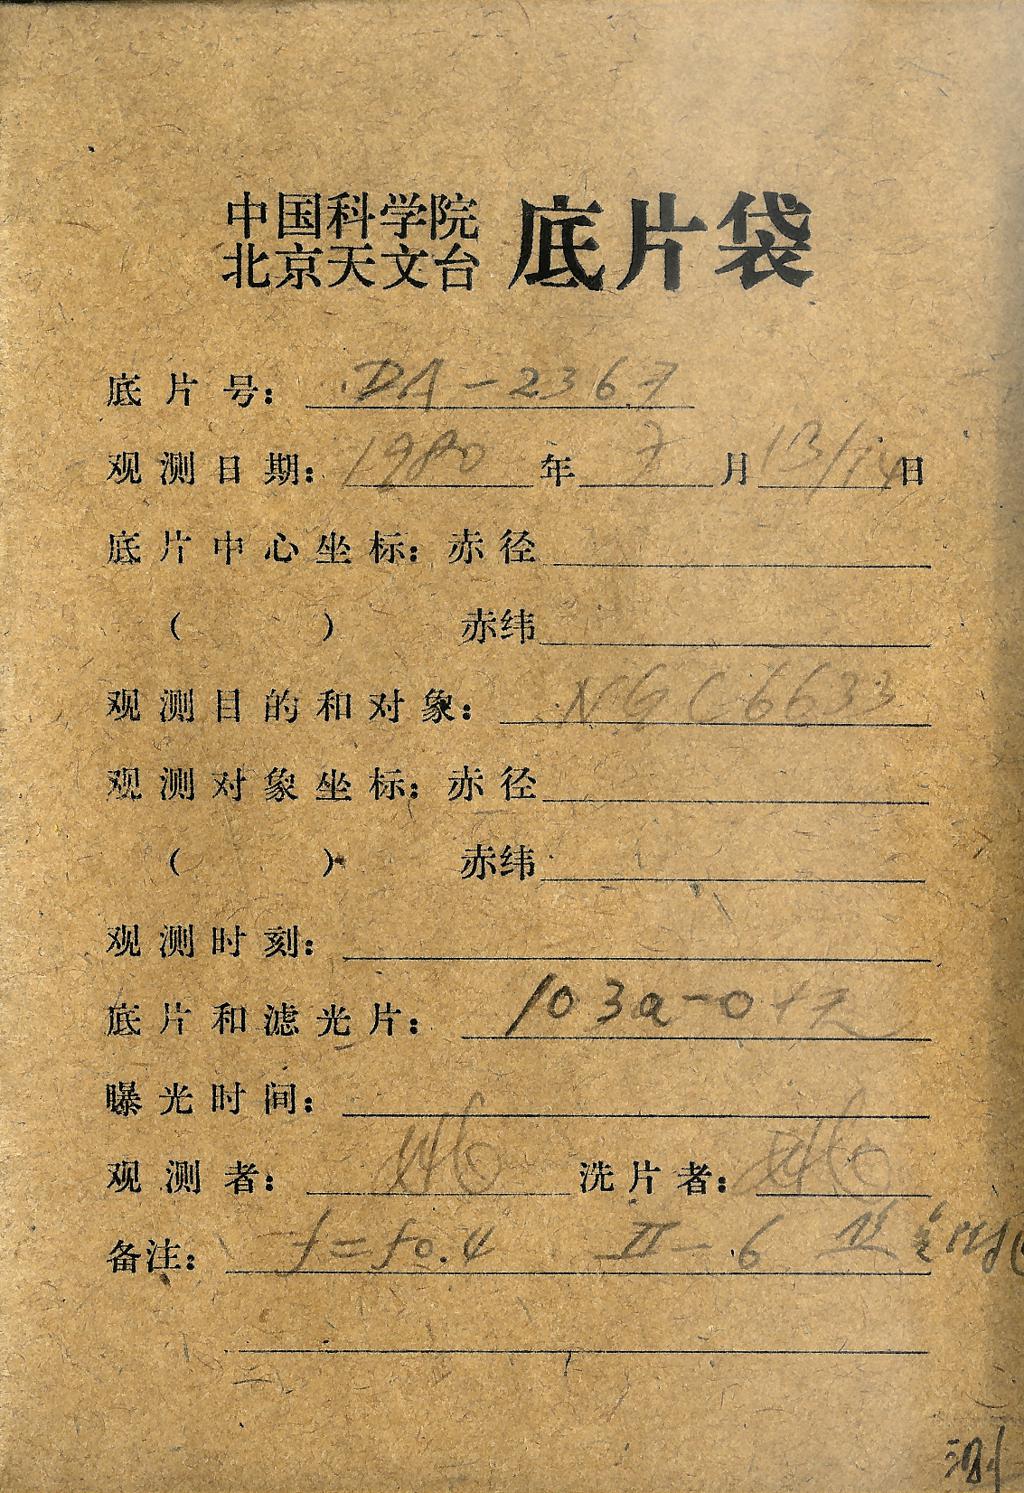 中国科学院
北京天文台 底片袋
底片号: DA-2367
观测日期: 1980年7月13/14日
底片中心坐标: 赤径
( ) 赤纬
观测目的和对象: NGC6633
观测对象坐标: 赤径
( ) 赤纬
观测时刻:
底片和滤光片: 103a-O+无
曝光时间:
观测者: 洗片者:
备注: f=f0.4 II-6
测